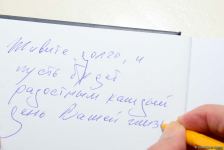 Живите долго, и
пусть будет
радостным каждый
день Вашей жизни